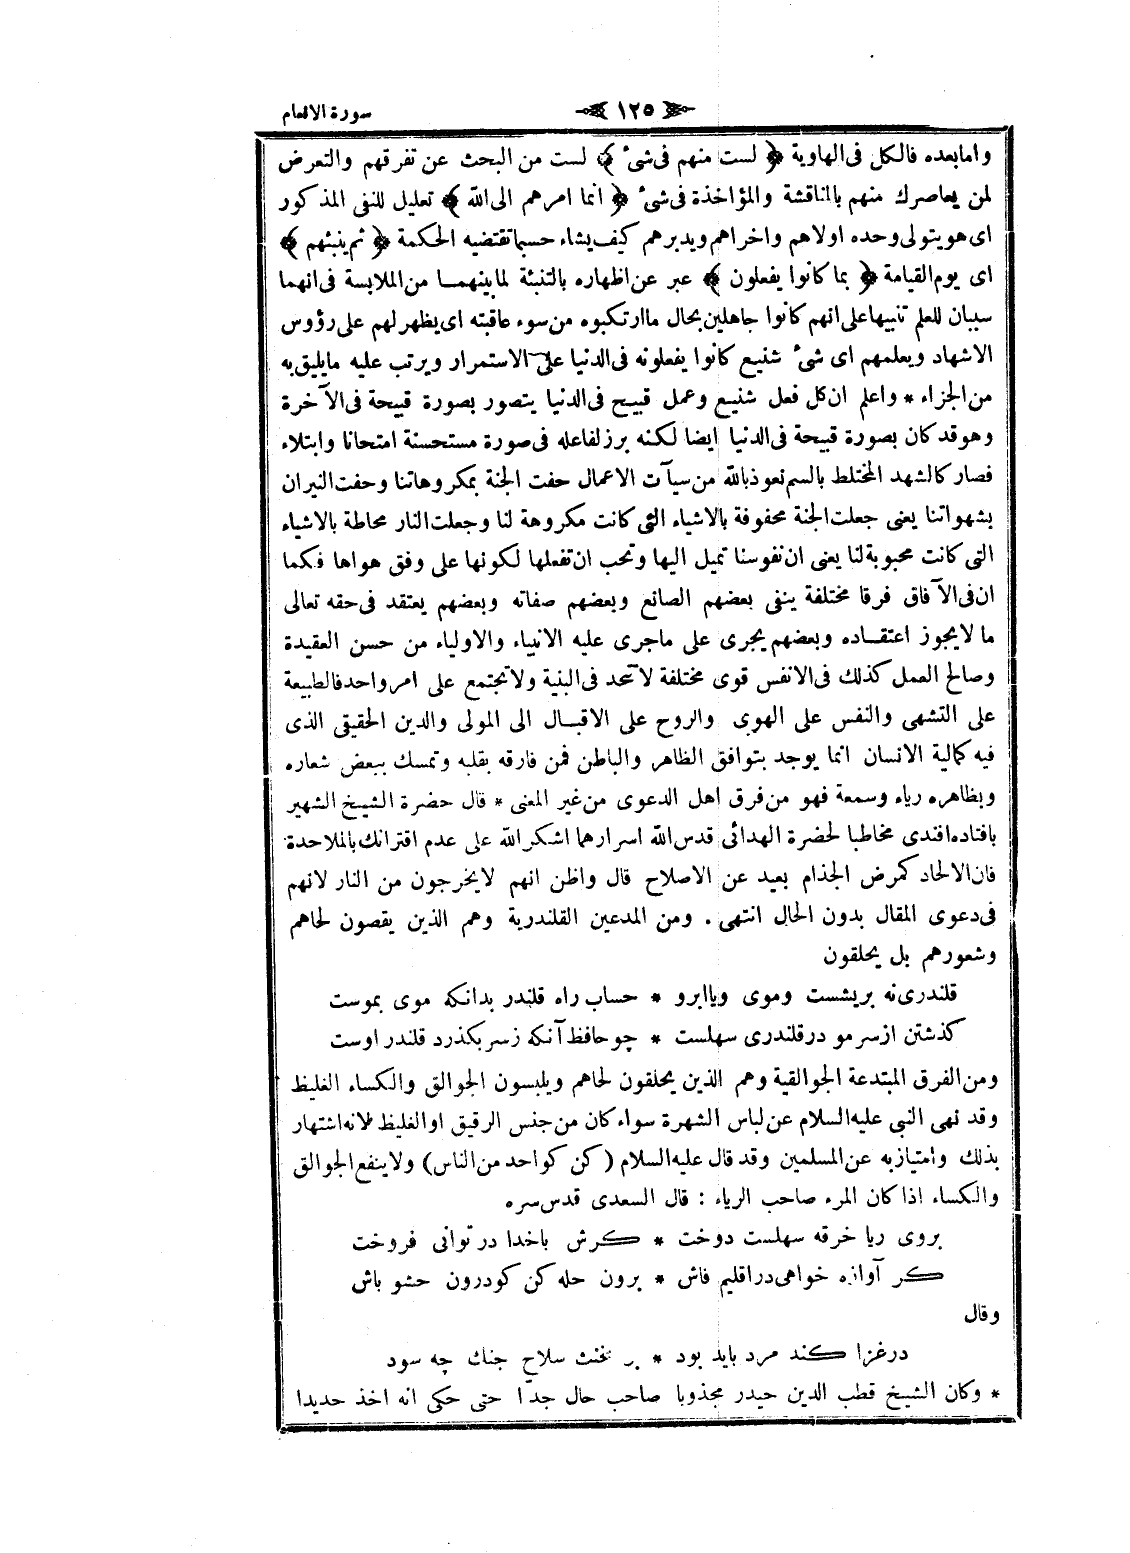 سورة الانعام ١٢٥
وامابعده فالكل فى الهاوية ﴿ لست منهم فى شئ ﴾ لست من البحث عن تفرقهم والتعرض
لمن يعاصرك منهم بالمناقشة والمؤاخذة فى شئ ﴿ انما امرهم الى الله ﴾ تعليل للنفى المذكور
اى هو يتولى وحده اولاهم واخراهم ويدبرهم كيف يشاء حسبما تقتضيه الحكمة ﴿ ثم ينبئهم ﴾
اى يوم القيامة ﴿ بما كانوا يفعلون ﴾ عبر عن اظهاره بالتنبئة لما بينهما من الملابسة فى انهما
سببان للعلم تنبيها على انهم كانوا جاهلين بحال ما ارتكبوه من سوء عاقبته اى يظهر لهم على رؤوس
الاشهاد ويعلمهم اى شئ شنيع كانوا يفعلونه فى الدنيا على الاستمرار ويرتب عليه ما يليق به
من الجزاء * واعلم ان كل فعل شنيع وعمل قبيح فى الدنيا يتصور بصورة قبيحة فى الآخرة
وهو قد كان بصورة قبيحة فى الدنيا ايضا لكنه برز لفاعله فى صورة مستحسنة امتحانا وابتلاء
فصار كالشهد المختلط بالسم نعوذ بالله من سيآت الاعمال حفت الجنة بمكروهاتنا وحفت النيران
بشهواتنا يعنى جعلت الجنة محفوفة بالاشياء التى كانت مكروهة لنا وجعلت النار محاطة بالاشياء
التى كانت محبوبة لنا يعنى ان نفوسنا تميل اليها وتحب ان تفعلها لكونها على وفق هواها فكما
ان فى الآفاق فرقا مختلفة ينفى بعضهم الصانع وبعضهم صفاته وبعضهم يعتقد فى حقه تعالى
ما لا يجوز اعتقاده وبعضهم يجرى على ماجرى عليه الانبياء والاولياء من حسن العقيدة
وصالح العمل كذلك فى الانفس قوى مختلفة لا تتحد فى البنية ولا تجتمع على امر واحد فالطبيعة
على التشهى والنفس على الهوى والروح على الاقبال الى المولى والدين الحقيقى الذى
فيه كمالية الانسان انما يوجد بتوافق الظاهر والباطن فمن فارقه بقلبه وتمسك ببعض شعاره
وبظاهره رياء وسمعة فهو من فرق اهل الدعوى من غير المعنى * قال حضرة الشيخ الشهير
بافتاده افندى مخاطبا لحضرة الهدائى قدس الله اسرارهما اشكر الله على عدم اقترانك بالملاحدة
فان الالحاد كمرض الجذام بعيد عن الاصلاح قال واظن انهم لا يخرجون من النار لانهم
فى دعوى المقال بدون الحال انتهى . ومن المدعين القلندرية وهم الذين يقصون لحاهم
وشعورهم بل يحلقون
قلندرى نه بريشست وموى ويا ابرو * حساب راه قلندر بدانكه موى بموست
كذشتن از سر مو در قلندرى سهلست * چو حافظ آنكه ز سر بكذرد قلندر اوست
ومن الفرق المبتدعة الجوالقية وهم الذين يحلقون لحاهم ويلبسون الجوالق والكساء الغليظ
وقد نهى النبى عليه السلام عن لباس الشهرة سواء كان من جنس الرقيق او الغليظ لانه اشتهار
بذلك وامتياز به عن المسلمين وقد قال عليه السلام (كن كواحد من الناس) ولا ينفع الجوالق
والكساء اذا كان المرء صاحب الرياء : قال السعدى قدس سره
بروى ريا خرقه سهلست دوخت * كرش باخدا در توانى فروخت
كر آوازه خواهى در اقليم فاش * برون حله كن كو درون حشو باش
وقال
در غزا كند مرد بايد بود * بر مخنث سلاح جنك چه سود
* وكان الشيخ قطب الدين حيدر مجذوبا صاحب حال جدّا حتى حكى انه اخذ حديدا